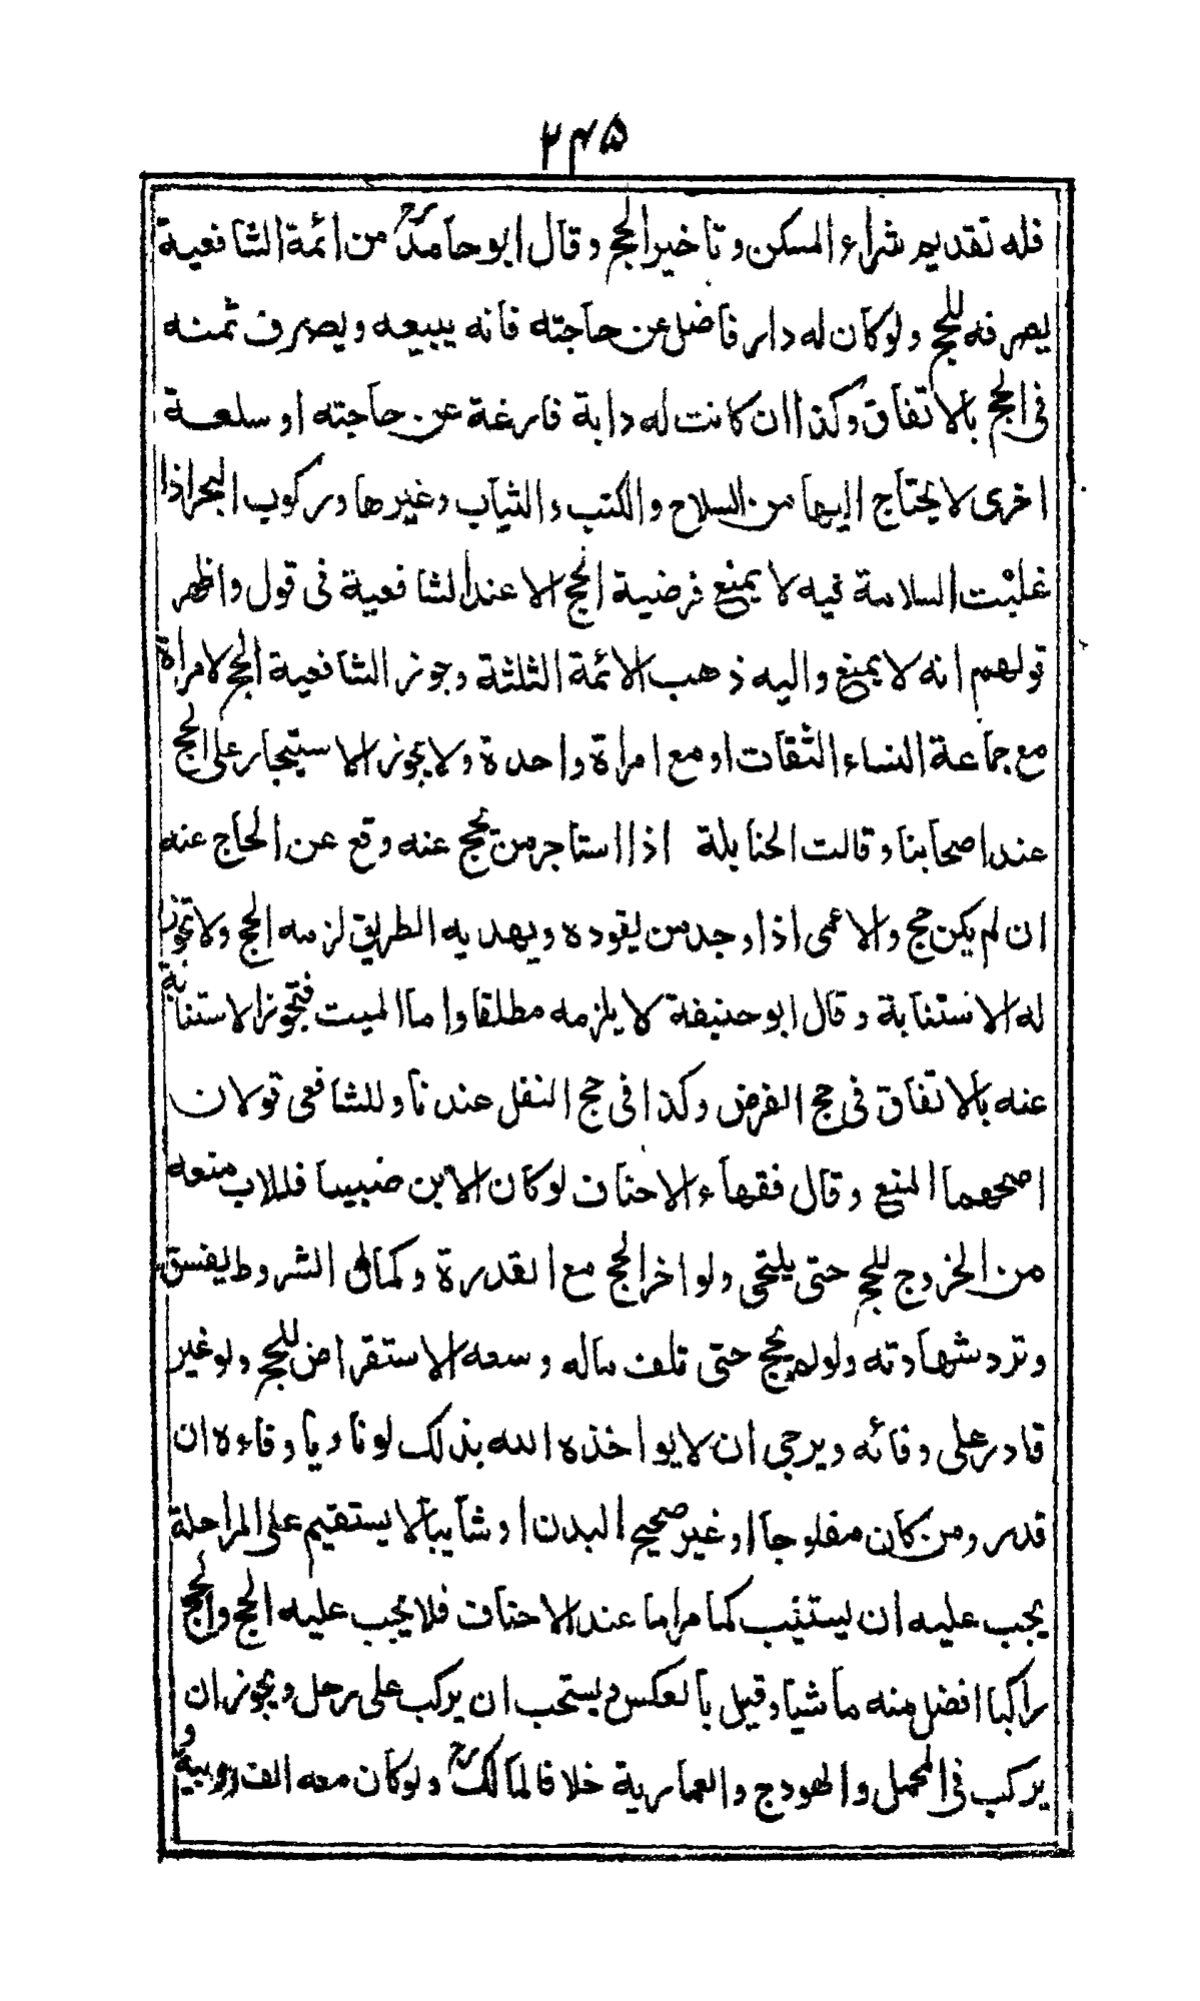 ۲۴۵
فله تقديم شراء المسكن وتاخير الحج وقال ابو حامد رح من ائمة الشافعية
يصرفه للحج ولو كان له دار فاضل عن حاجته فانه يبيعه ويصرف ثمنه
فى الحج بالاتفاق وكذا ان كانت له دابة فارغة عن حاجته او سلعة
اخرى لا يحتاج اليها من السلاح والكتب والثياب وغيرها وركوب البحر اذا
غلبت السلامة فيه لا يمنع فرضية الحج الا عند الشافعية فى قول واظهر
قولهم انه لا يمنع واليه ذهب الائمة الثلثة وجوز الشافعية الحج لامراة
مع جماعة النساء الثقات او مع امراة واحدة ولا يجوز الاستيجار على الحج
عند اصحابنا وقالت الحنابلة اذا استاجر من يحج عنه وقع عن الحاج عنه
ان لم يكن حج والاعمى اذا وجد من يقوده ويهديه الطريق لزمه الحج ولا تجوز
له الاستنابة وقال ابو حنيفة لا يلزمه مطلقا واما الميت فتجوز الاستنابة
عنه بالاتفاق فى حج الفرض وكذا فى حج النفل عندنا وللشافعى قولان
اصحهما المنع وقال فقهاء الاحناف لو كان الابن ضبيسا فللاب منعه
من الخروج للحج حتى يلتحى ولو اخر الحج مع القدرة وكمال الشروط يفسق
وترد شهادته ولو لم يحج حتى تلف ماله وسعه الاستقراض للحج ولو غير
قادر على وفائه ويرجى ان لا يواخذه الله بذلك لو ناويا وفاءه ان
قدر ومن كان مفلوجا او غير صحيح البدن او شايبا لا يستقيم على الراحلة
يجب عليه ان يستنيب كما مر اما عند الاحناف فلا يجب عليه الحج والحج
راكبا افضل منه ماشيا وقيل بالعكس ويستحب ان يركب على رحل ويجوز ان
يركب فى المحمل والهودج والعمارية خلافا لمالك رح ولو كان معه الف روبية و